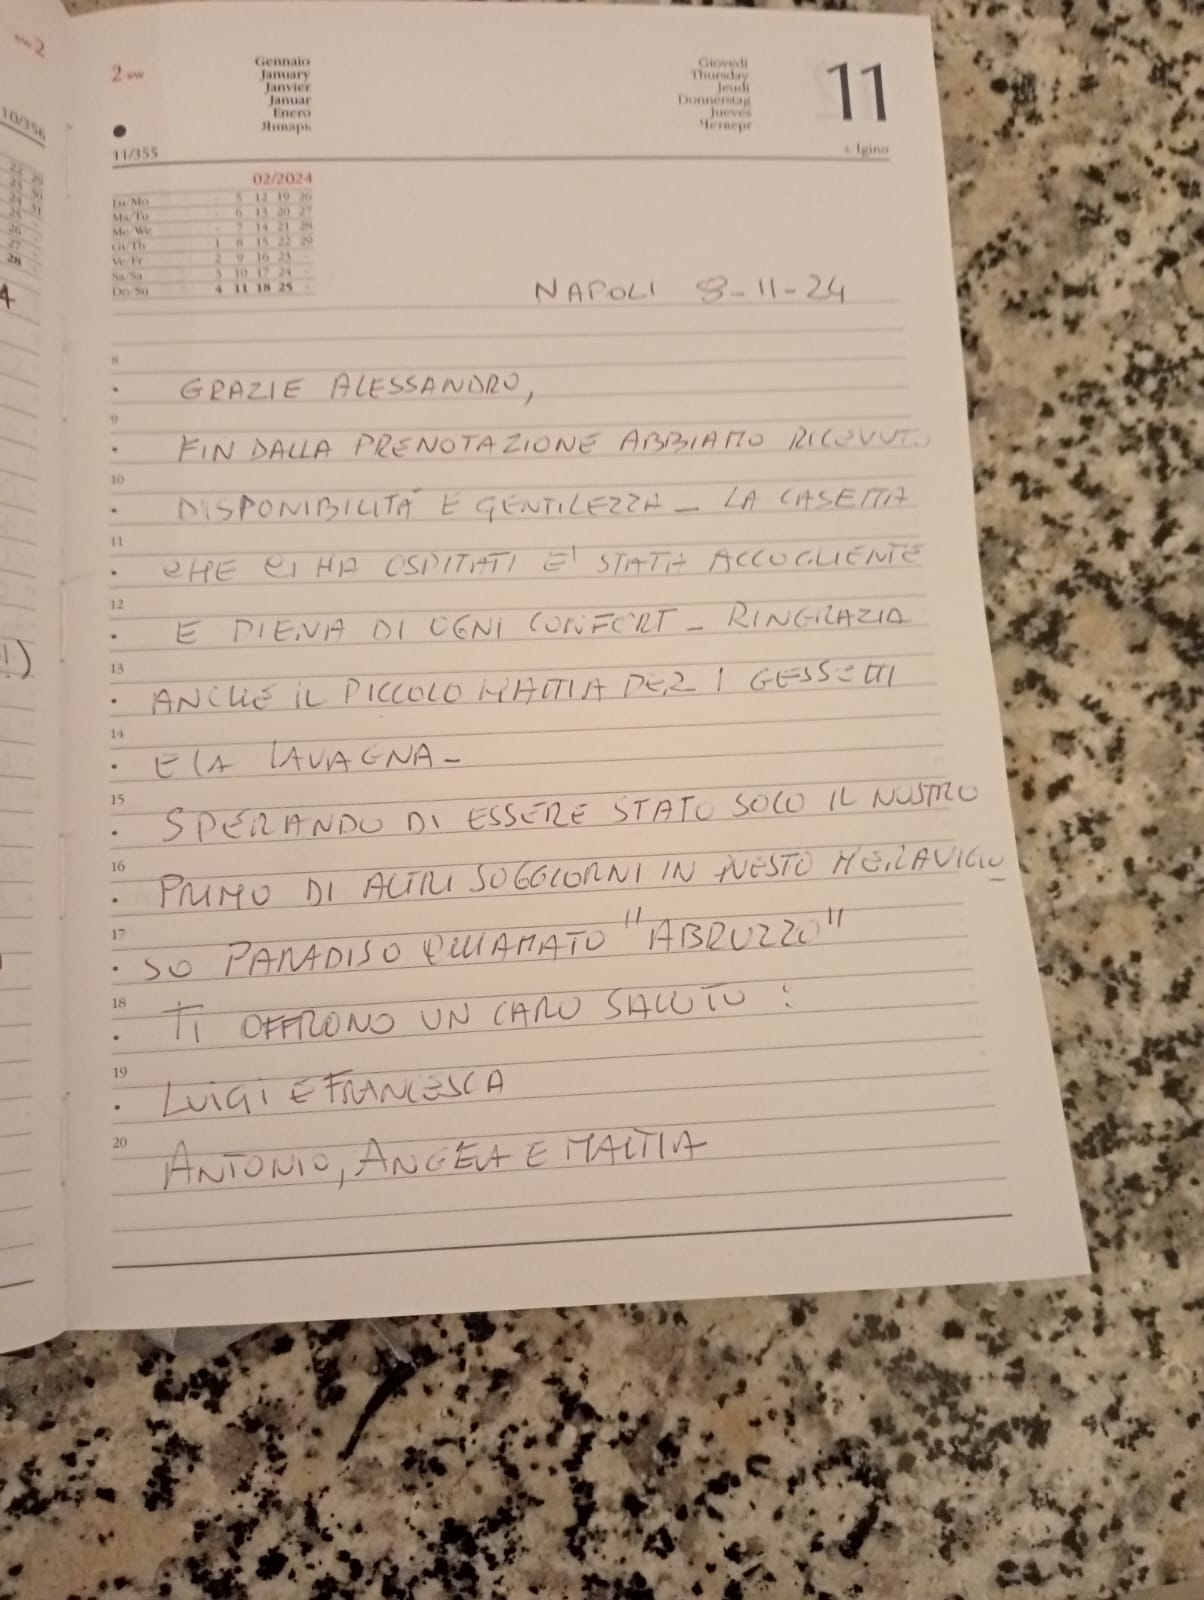 2 sw
Gennaio
January
Janvier
Januar
Enero
Январь
Giovedì
Thursday
Jeudi
Donnerstag
Jueves
Четверг
11
11/355
s. Igino
02/2024
Lu/Mo 5 12 19 26
Ma/Tu 6 13 20 27
Me/We 7 14 21 28
Gi/Th 1 8 15 22 29
Ve/Fr 2 9 16 23
Sa/Sa 3 10 17 24
Do/Su 4 11 18 25
NAPOLI 8-11-24
8
GRAZIE ALESSANDRO,
9
FIN DALLA PRENOTAZIONE ABBIAMO RICEVUTO
10
DISPONIBILITÀ E GENTILEZZA - LA CASETTA
11
CHE CI HA OSPITATI E' STATA ACCOGLIENTE
12
E PIENA DI OGNI CONFORT - RINGRAZIA
13
ANCHE IL PICCOLO MATTIA PER I GESSETTI
14
E LA LAVAGNA -
15
SPERANDO DI ESSERE STATO SOLO IL NOSTRO
16
PRIMO DI ALTRI SOGGIORNI IN QUESTO MERAVIGLIO_
17
SO PARADISO CHIAMATO "ABRUZZO"
18
TI OFFRONO UN CARO SALUTO :
19
LUIGI E FRANCESCA
20
ANTONIO, ANGELA E MATTIA